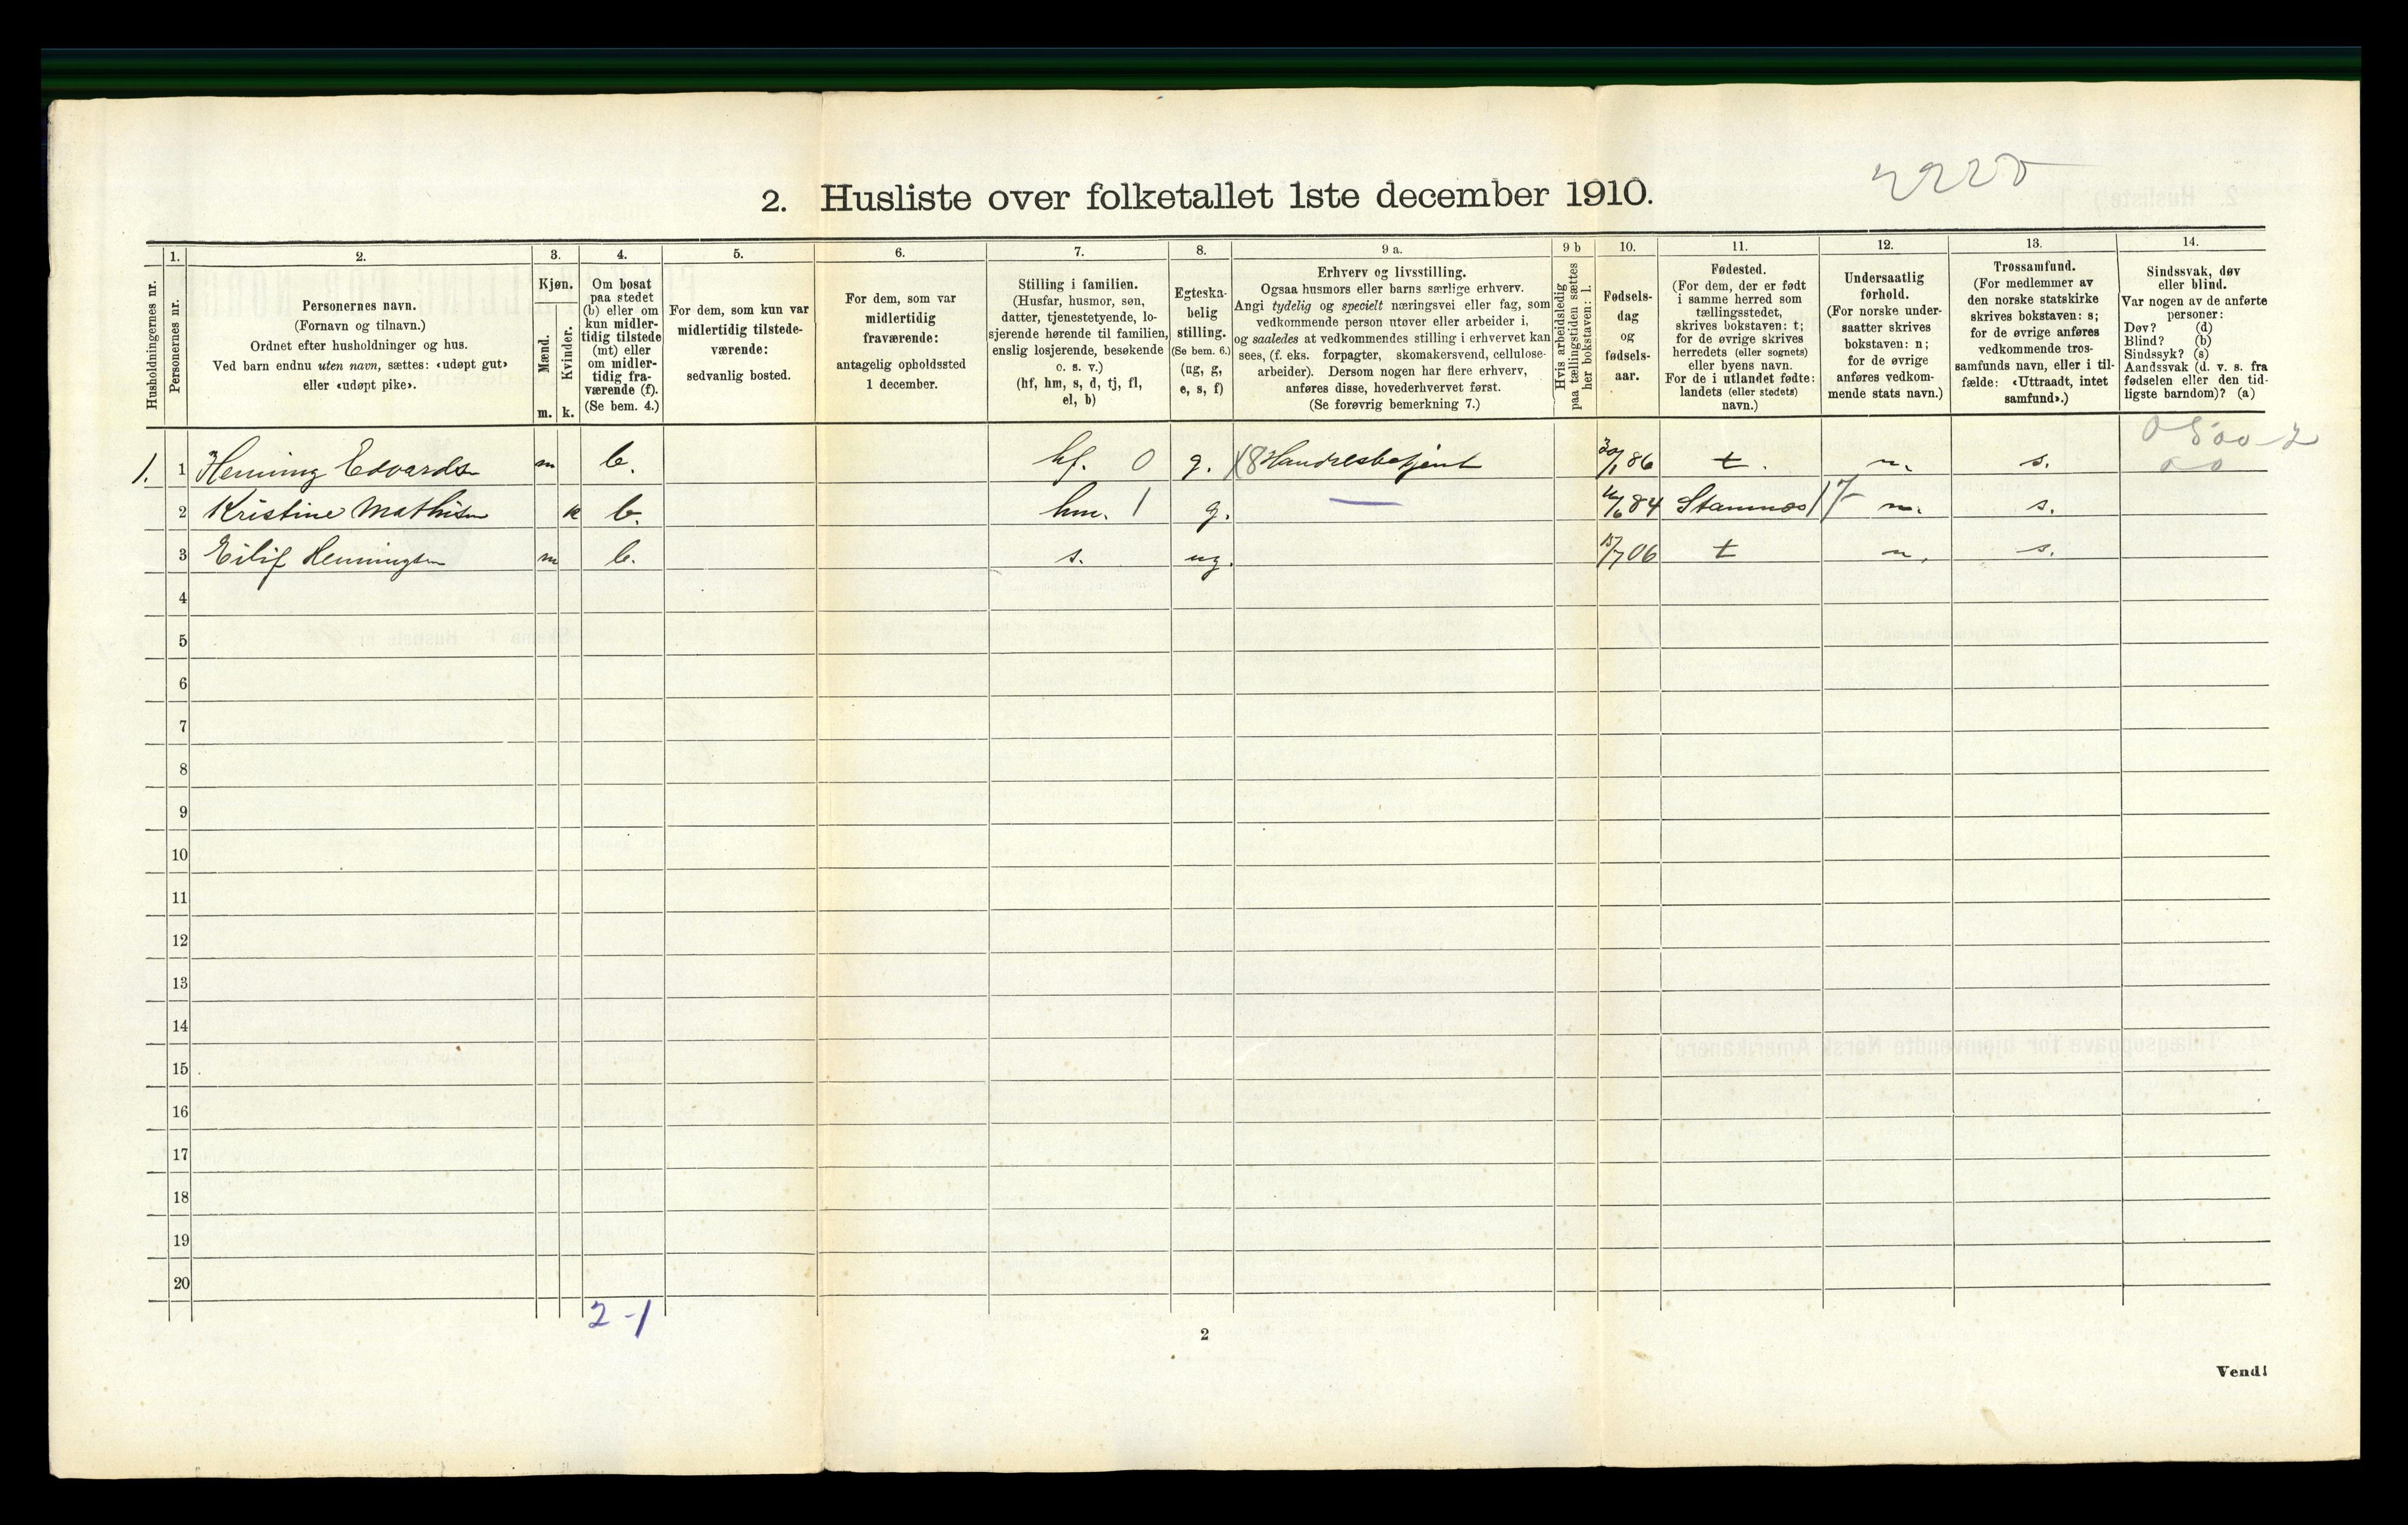 2220
2. Husliste over folketallet 1ste december 1910.
1. 2. 3. 4. 5. 6. 7. 8. 9 a. 9 b 10. 11. 12. 13. 14.
Husholdningernes nr.
Personernes nr.
Personernes navn.
(Fornavn og tilnavn.)
Ordnet efter husholdninger og hus.
Ved barn endnu uten navn, sættes: «udøpt gut»
eller «udøpt pike».
Kjøn.
Mænd.
Kvinder.
m. k.
Om bosat
paa stedet
(b) eller om
kun midler-
tidig tilstede
(mt) eller
om midler-
tidig fra-
værende (f).
(Se bem. 4.)
For dem, som kun var
midlertidig tilstede-
værende:
sedvanlig bosted.
For dem, som var
midlertidig
fraværende:
antagelig opholdssted
1 december.
Stilling i familien.
(Husfar, husmor, søn,
datter, tjenestetyende, lo-
sjerende hørende til familien,
enslig losjerende, besøkende
o. s. v.)
(hf, hm, s, d, tj, fl,
el, b)
Egteska-
belig
stilling.
(Se bem. 6.)
(ug, g,
e, s, f)
Erhverv og livsstilling.
Ogsaa husmors eller barns særlige erhverv.
Angi tydelig og specielt næringsvei eller fag, som
vedkommende person utøver eller arbeider i,
og saaledes at vedkommendes stilling i erhvervet kan
sees, (f. eks. forpagter, skomakersvend, cellulose-
arbeider). Dersom nogen har flere erhverv,
anføres disse, hovederhvervet først.
(Se forøvrig bemerkning 7.)
Hvis arbeidsledig
paa tællingstiden sættes
her bokstaven: l.
Fødsels-
dag
og
fødsels-
aar.
Fødested.
(For dem, der er født
i samme herred som
tællingsstedet,
skrives bokstaven: t;
for de øvrige skrives
herredets (eller sognets)
eller byens navn.
For de i utlandet fødte:
landets (eller stedets)
navn.)
Undersaatlig
forhold.
(For norske under-
saatter skrives
bokstaven: n;
for de øvrige
anføres vedkom-
mende stats navn.)
Trossamfund.
(For medlemmer av
den norske statskirke
skrives bokstaven: s;
for de øvrige anføres
vedkommende tros-
samfunds navn, eller i til-
fælde: «Uttraadt, intet
samfund».)
Sindssvak, døv
eller blind.
Var nogen av de anførte
personer:
Døv? (d)
Blind? (b)
Sindssyk? (s)
Aandssvak (d. v. s. fra
fødselen eller den tid-
ligste barndom)? (a)
0 500-2
00
1. 1 Henning Edvardsen m b. hf. 0 g. X8 Handelsbetjent 30/1 86 t. n. s.
2 Kristine Mathisen k b. hm. 1 g. — /6 84 Stamnes 17 n. s.
3 Eilif Henningsen m b. s. ug. 15/7 06 t n. s.
4
5
6
7
8
9
10
11
12
13
14
15
16
17
18
19
20
2 - 1
2
Vend!